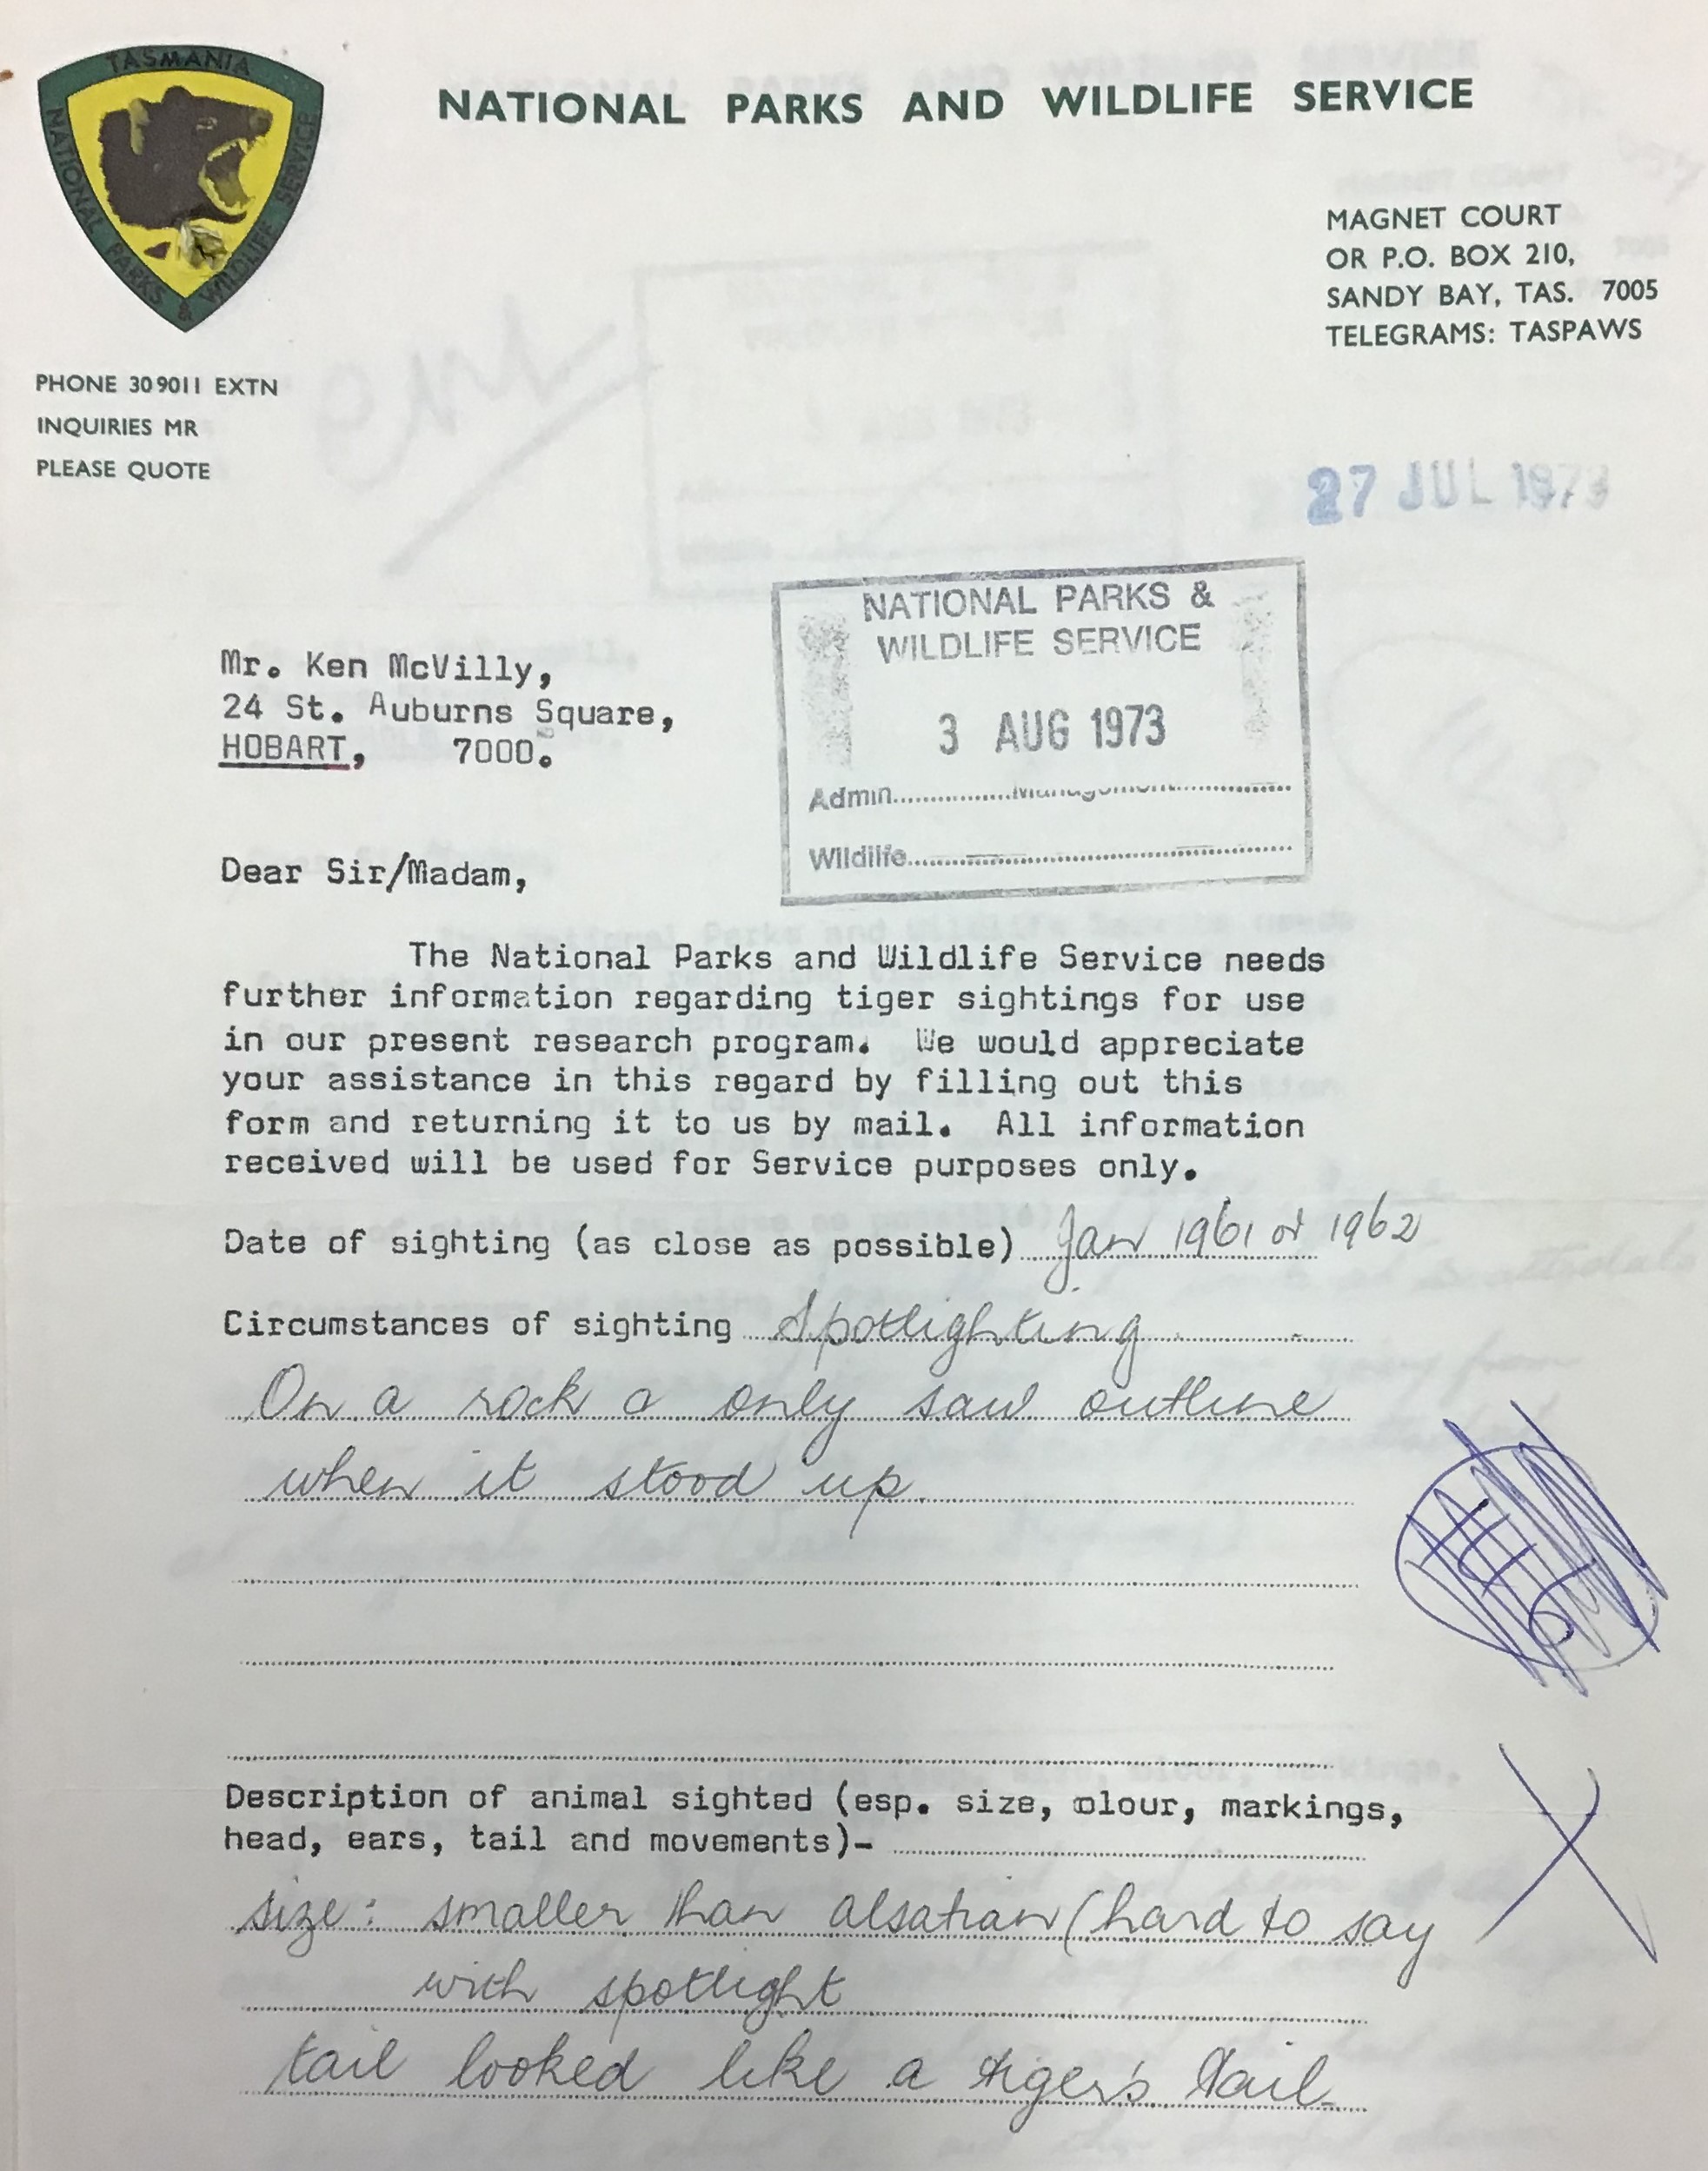 TASMANIA
NATIONAL PARKS & WILDLIFE SERVICE
NATIONAL PARKS AND WILDLIFE SERVICE
MAGNET COURT
OR P.O. BOX 210,
SANDY BAY, TAS. 7005
TELEGRAMS: TASPAWS
PHONE 30 9011 EXTN
INQUIRIES MR
PLEASE QUOTE
27 JUL 1973
NATIONAL PARKS &
WILDLIFE SERVICE
3 AUG 1973
Admin..............Management..............
Wildlife..............
Mr. Ken McVilly,
24 St. Auburns Square,
HOBART, 7000.
Dear Sir/Madam,
The National Parks and Wildlife Service needs
further information regarding tiger sightings for use
in our present research program. We would appreciate
your assistance in this regard by filling out this
form and returning it to us by mail. All information
received will be used for Service purposes only.
Date of sighting (as close as possible) Jan 1961 or 1962
Circumstances of sighting Spotlighting
On a rock & only saw outline
when it stood up.
Description of animal sighted (esp. size, olour, markings,
head, ears, tail and movements)-
size: smaller than alsatian (hard to say
with spotlight
tail looked like a tiger's tail